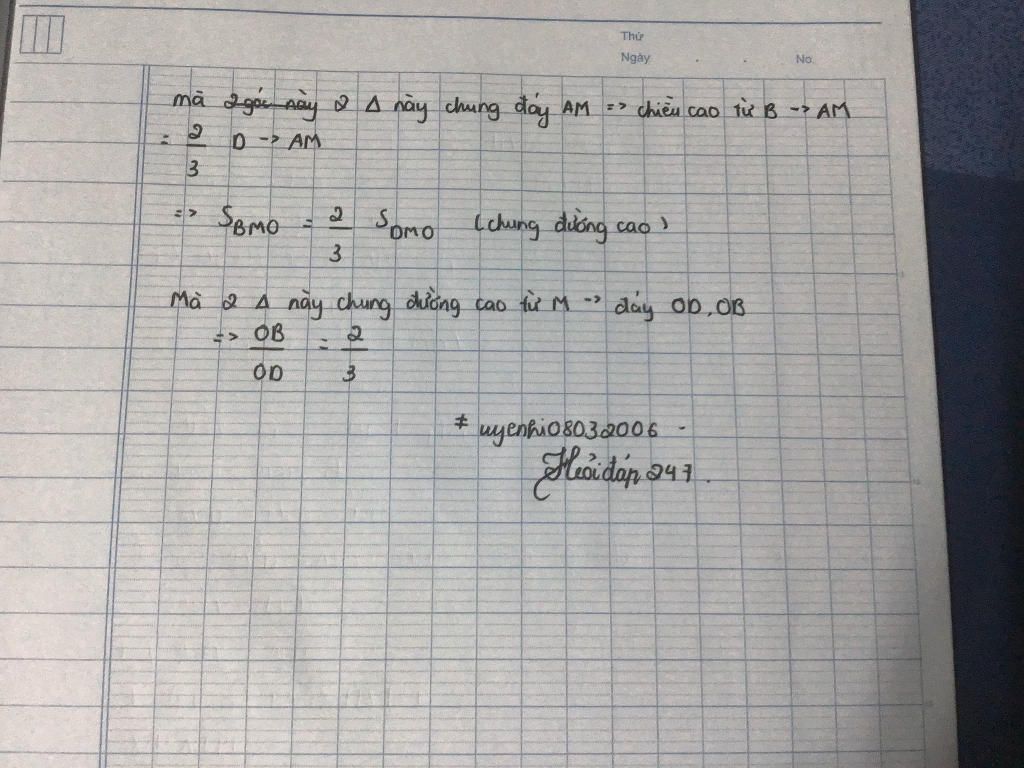 Thứ
Ngày . . No.
mà 2 góc này 2 Δ này chung đáy AM => chiều cao từ B -> AM
= 2/3 D -> AM
=> S_BMO = 2/3 S_DMO (chung đường cao)
Mà 2 Δ này chung đường cao từ M -> đáy OD, OB
=> OB/OD = 2/3
# uyenhi08032006 -
Hỏi đáp 247.